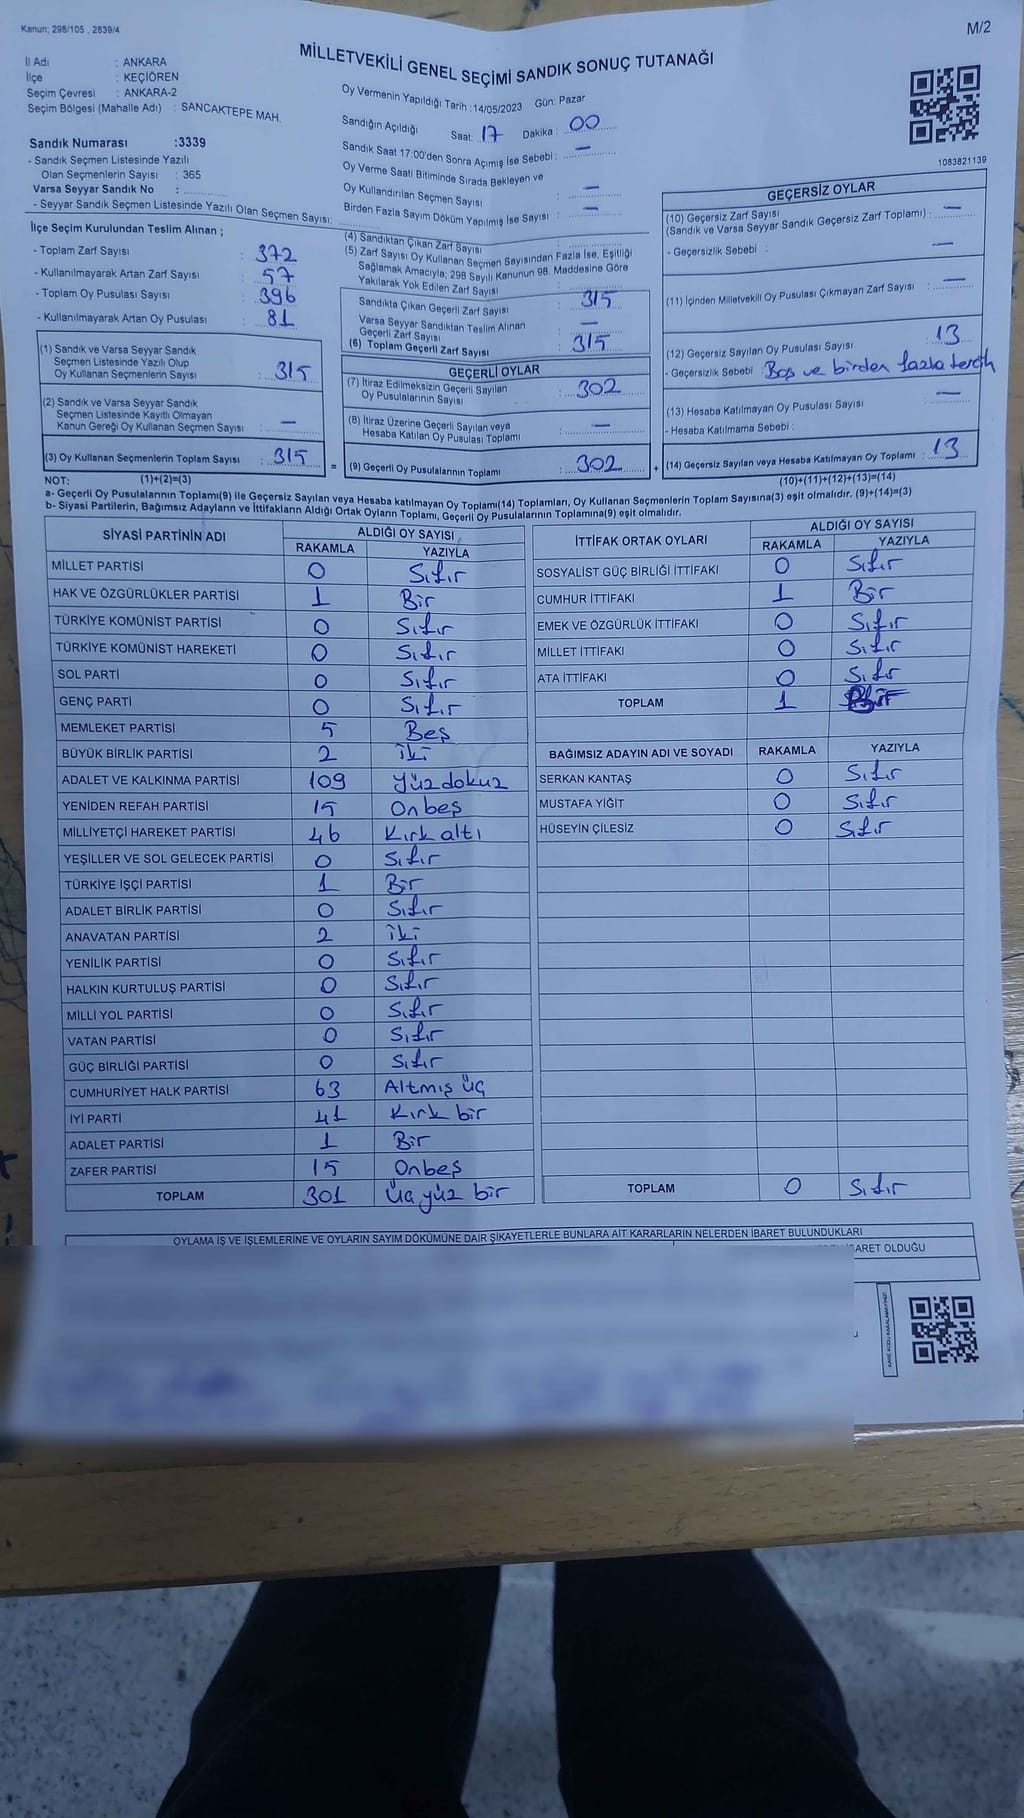 Kanun; 298/105 , 2839/4
M/2
MİLLETVEKİLİ GENEL SEÇİMİ SANDIK SONUÇ TUTANAĞI
İl Adı : ANKARA
İlçe : KEÇİÖREN
Seçim Çevresi : ANKARA-2
Seçim Bölgesi (Mahalle Adı) : SANCAKTEPE MAH.
Sandık Numarası :3339
- Sandık Seçmen Listesinde Yazılı
Olan Seçmenlerin Sayısı : 365
Varsa Seyyar Sandık No :
- Seyyar Sandık Seçmen Listesinde Yazılı Olan Seçmen Sayısı:
Oy Vermenin Yapıldığı Tarih :14/05/2023 Gün: Pazar
Sandığın Açıldığı Saat: 17 Dakika : 00
Sandık Saat 17:00'den Sonra Açımış İse Sebebi : —
Oy Verme Saati Bitiminde Sırada Bekleyen ve
Oy Kullandırılan Seçmen Sayısı : —
Birden Fazla Sayım Döküm Yapılmış İse Sayısı : —
1083821139
İlçe Seçim Kurulundan Teslim Alınan ;
- Toplam Zarf Sayısı : 372
- Kullanılmayarak Artan Zarf Sayısı : 57
- Toplam Oy Pusulası Sayısı : 396
- Kullanılmayarak Artan Oy Pusulası : 81
(1) Sandık ve Varsa Seyyar Sandık
Seçmen Listesinde Yazılı Olup
Oy Kullanan Seçmenlerin Sayısı : 315
(2) Sandık ve Varsa Seyyar Sandık
Seçmen Listesinde Kayıtlı Olmayan
Kanun Gereği Oy Kullanan Seçmen Sayısı : —
(3) Oy Kullanan Seçmenlerin Toplam Sayısı : 315
(4) Sandıktan Çıkan Zarf Sayısı
(5) Zarf Sayısı Oy Kullanan Seçmen Sayısından Fazla İse, Eşitliği
Sağlamak Amacıyla; 298 Sayılı Kanunun 98. Maddesine Göre
Yakılarak Yok Edilen Zarf Sayısı
Sandıkta Çıkan Geçerli Zarf Sayısı : 315
Varsa Seyyar Sandıktan Teslim Alınan
Geçerli Zarf Sayısı : —
(6) Toplam Geçerli Zarf Sayısı : 315
GEÇERLİ OYLAR
(7) İtiraz Edilmeksizin Geçerli Sayılan
Oy Pusulalarının Sayısı : 302
(8) İtiraz Üzerine Geçerli Sayılan veya
Hesaba Katılan Oy Pusulası Toplamı : —
= (9) Geçerli Oy Pusulalarının Toplamı : 302
GEÇERSİZ OYLAR
(10) Geçersiz Zarf Sayısı
(Sandık ve Varsa Seyyar Sandık Geçersiz Zarf Toplamı) : —
- Geçersizlik Sebebi : —
(11) İçinden Milletvekili Oy Pusulası Çıkmayan Zarf Sayısı : —
(12) Geçersiz Sayılan Oy Pusulası Sayısı : 13
- Geçersizlik Sebebi : Boş ve birden fazla tercih
(13) Hesaba Katılmayan Oy Pusulası Sayısı : —
- Hesaba Katılmama Sebebi :
+ (14) Geçersiz Sayılan veya Hesaba Katılmayan Oy Toplamı : 13
NOT: (1)+(2)=(3)
(10)+(11)+(12)+(13)=(14)
a- Geçerli Oy Pusulalarının Toplamı(9) ile Geçersiz Sayılan veya Hesaba katılmayan Oy Toplamı(14) Toplamları, Oy Kullanan Seçmenlerin Toplam Sayısına(3) eşit olmalıdır. (9)+(14)=(3)
b- Siyasi Partilerin, Bağımsız Adayların ve İttifakların Aldığı Ortak Oyların Toplamı, Geçerli Oy Pusulalarının Toplamına(9) eşit olmalıdır.
SİYASİ PARTİNİN ADI ALDIĞI OY SAYISI
RAKAMLA YAZIYLA
MİLLET PARTİSİ 0 Sıfır
HAK VE ÖZGÜRLÜKLER PARTİSİ 1 Bir
TÜRKİYE KOMÜNİST PARTİSİ 0 Sıfır
TÜRKİYE KOMÜNİST HAREKETİ 0 Sıfır
SOL PARTİ 0 Sıfır
GENÇ PARTİ 0 Sıfır
MEMLEKET PARTİSİ 5 Beş
BÜYÜK BİRLİK PARTİSİ 2 iki
ADALET VE KALKINMA PARTİSİ 109 Yüzdokuz
YENİDEN REFAH PARTİSİ 15 Onbeş
MİLLİYETÇİ HAREKET PARTİSİ 46 Kırk altı
YEŞİLLER VE SOL GELECEK PARTİSİ 0 Sıfır
TÜRKİYE İŞÇİ PARTİSİ 1 Bir
ADALET BİRLİK PARTİSİ 0 Sıfır
ANAVATAN PARTİSİ 2 iki
YENİLİK PARTİSİ 0 Sıfır
HALKIN KURTULUŞ PARTİSİ 0 Sıfır
MİLLİ YOL PARTİSİ 0 Sıfır
VATAN PARTİSİ 0 Sıfır
GÜÇ BİRLİĞİ PARTİSİ 0 Sıfır
CUMHURİYET HALK PARTİSİ 63 Altmış üç
İYİ PARTİ 41 Kırk bir
ADALET PARTİSİ 1 Bir
ZAFER PARTİSİ 15 Onbeş
TOPLAM 301 Üç yüz bir
İTTİFAK ORTAK OYLARI ALDIĞI OY SAYISI
RAKAMLA YAZIYLA
SOSYALİST GÜÇ BİRLİĞİ İTTİFAKI 0 Sıfır
CUMHUR İTTİFAKI 1 Bir
EMEK VE ÖZGÜRLÜK İTTİFAKI 0 Sıfır
MİLLET İTTİFAKI 0 Sıfır
ATA İTTİFAKI 0 Sıfır
TOPLAM 1 Bir
BAĞIMSIZ ADAYIN ADI VE SOYADI RAKAMLA YAZIYLA
SERKAN KANTAŞ 0 Sıfır
MUSTAFA YİĞİT 0 Sıfır
HÜSEYİN ÇİLESİZ 0 Sıfır
TOPLAM 0 Sıfır
OYLAMA İŞ VE İŞLEMLERİNE VE OYLARIN SAYIM DÖKÜMÜNE DAİR ŞİKAYETLERLE BUNLARA AİT KARARLARIN NELERDEN İBARET BULUNDUKLARI
BARET OLDUĞU